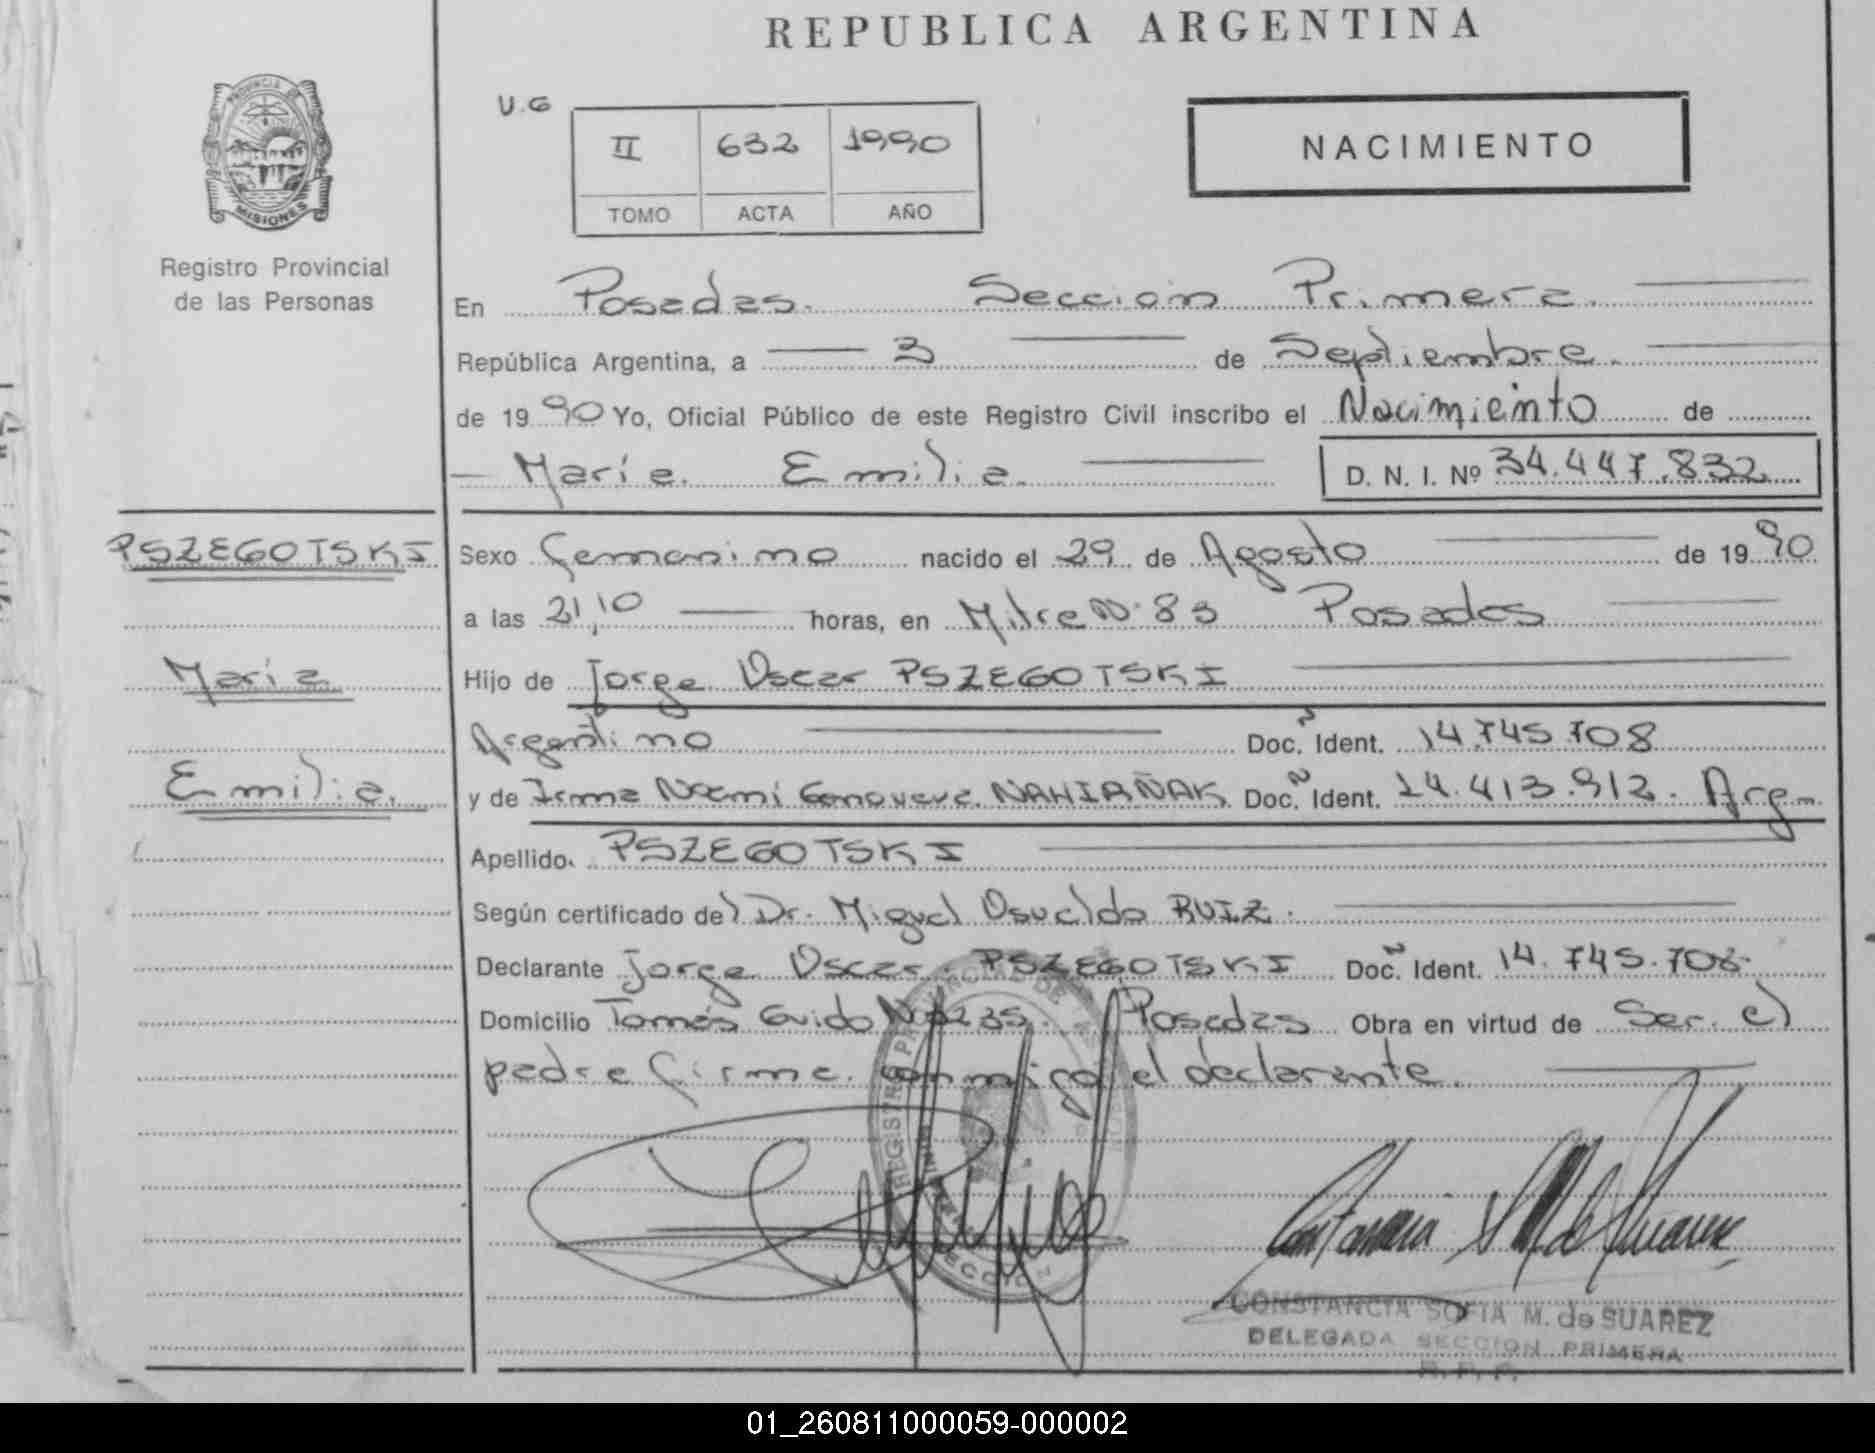 REPUBLICA ARGENTINA
PROVINCIA DE
MISIONES
Registro Provincial
de las Personas
U.G
II 632 1990
TOMO ACTA AÑO
NACIMIENTO
En Posadas. Sección Primera.
República Argentina, a 3 de Septiembre.
de 1990 Yo, Oficial Público de este Registro Civil inscribo el Nacimiento de
María. Emilia. D. N. I. Nº 34.447.832
PSZEGOTSKI
María
Emilia.
Sexo femenino nacido el 29 de Agosto de 1990
a las 21,10 horas, en Mitre Nº 83 Posadas
Hijo de Jorge Oscar PSZEGOTSKI
Argentino Doc. Ident. 14.745.708
y de Irma Noemí Genoveva NAHIRÑAK Doc. Ident. 14.413.912. Arg.
Apellido. PSZEGOTSKI
Según certificado del Dr. Miguel Osvaldo RUIZ.
Declarante Jorge Oscar PSZEGOTSKI Doc. Ident. 14.745.708
Domicilio Tomás Guido Posadas Obra en virtud de Ser el
padre firma conmigo el declarante.
CONSTANCIA SOFIA M. de SUAREZ
DELEGADA SECCION PRIMERA
R. P. P.
01_260811000059-000002